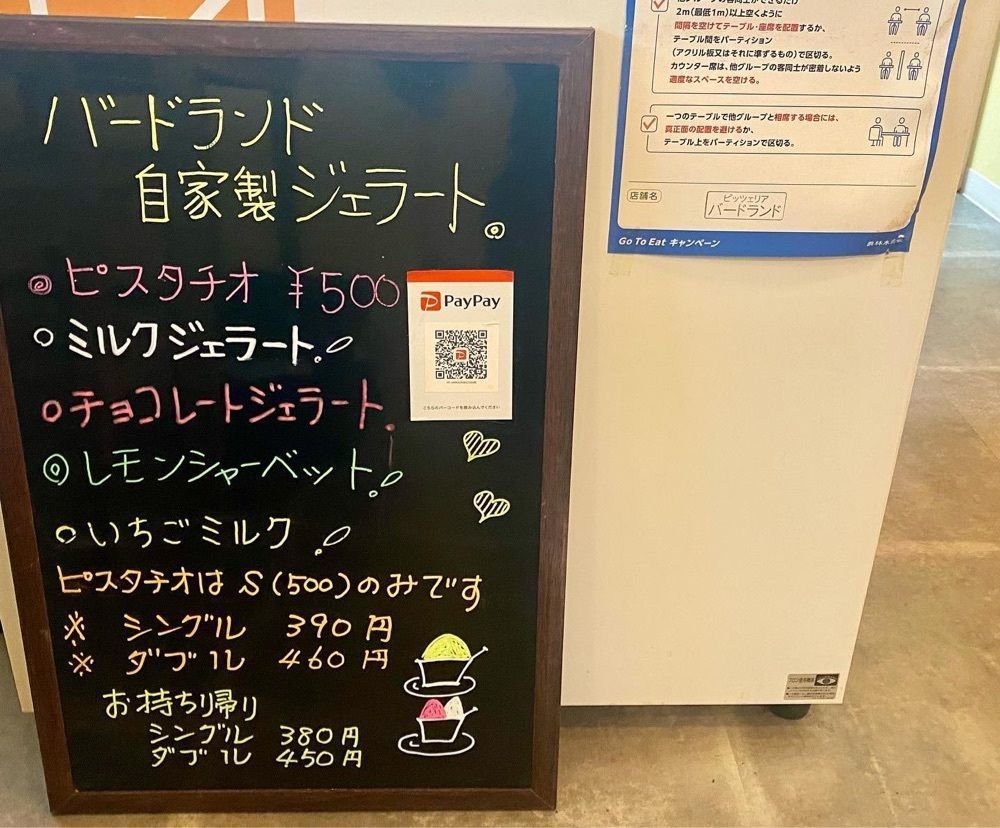 バードランド
自家製ジェラート。
◎ピスタチオ ¥500
○ミルクジェラート。
○チョコレートジェラート。
◎レモンシャーベット。
○いちごミルク
ピスタチオはS(500)のみです
※ シングル 390円
※ ダブル 460円
お持ち帰り
シングル 380円
ダブル 450円
PayPay
こちらのバーコードを読み込んでください
2m(最低1m)以上空くように
間隔を空けてテーブル・座席を配置するか、
テーブル間をパーティション
(アクリル板又はそれに準ずるもの)で区切る。
カウンター席は、他グループの客同士が密着しないよう
適度なスペースを空ける。
一つのテーブルで他グループと相席する場合には、
真正面の配置を避けるか、
テーブル上をパーティションで区切る。
店舗名
ピッツェリア
バードランド
Go To Eat キャンペーン